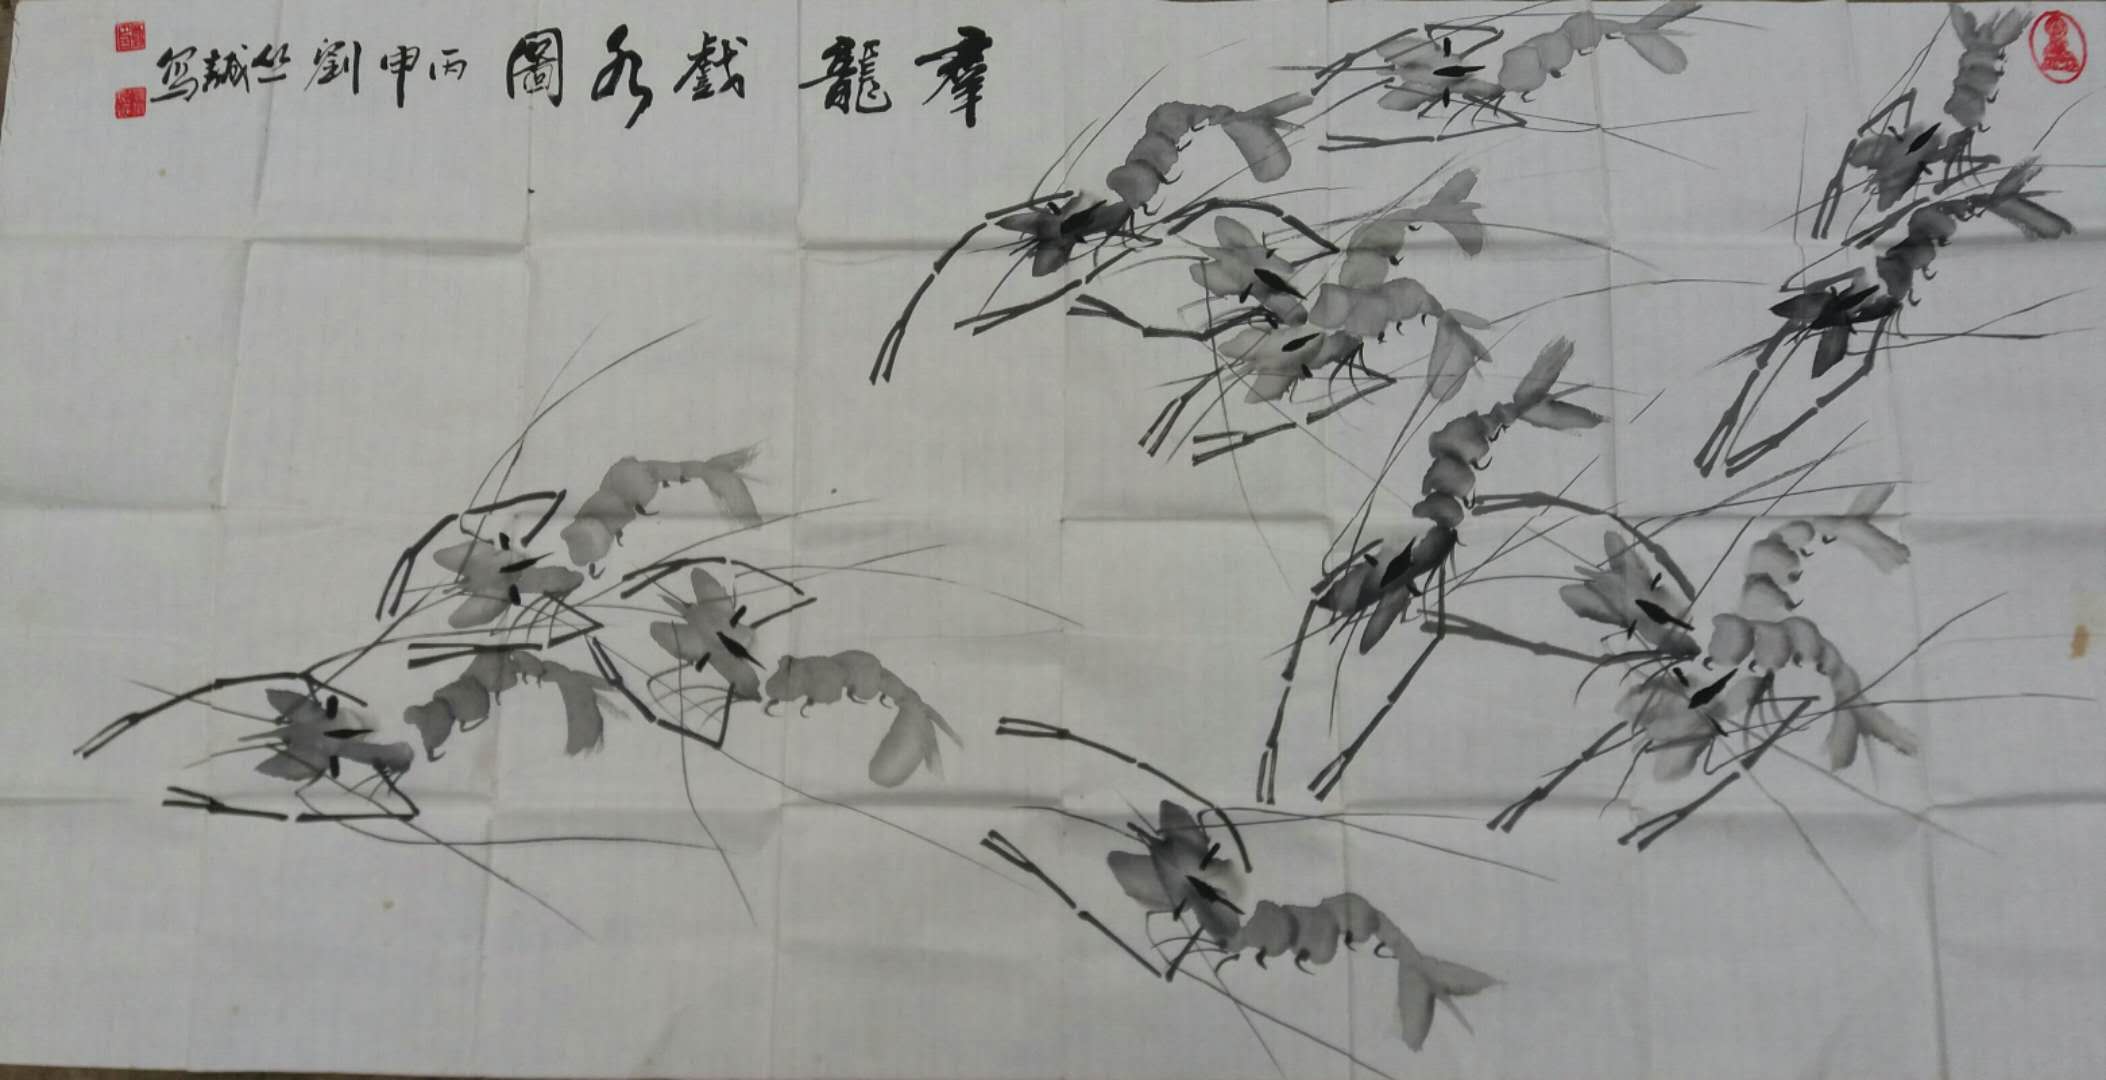 羣龍戲水圖 丙申劉竺誠寫